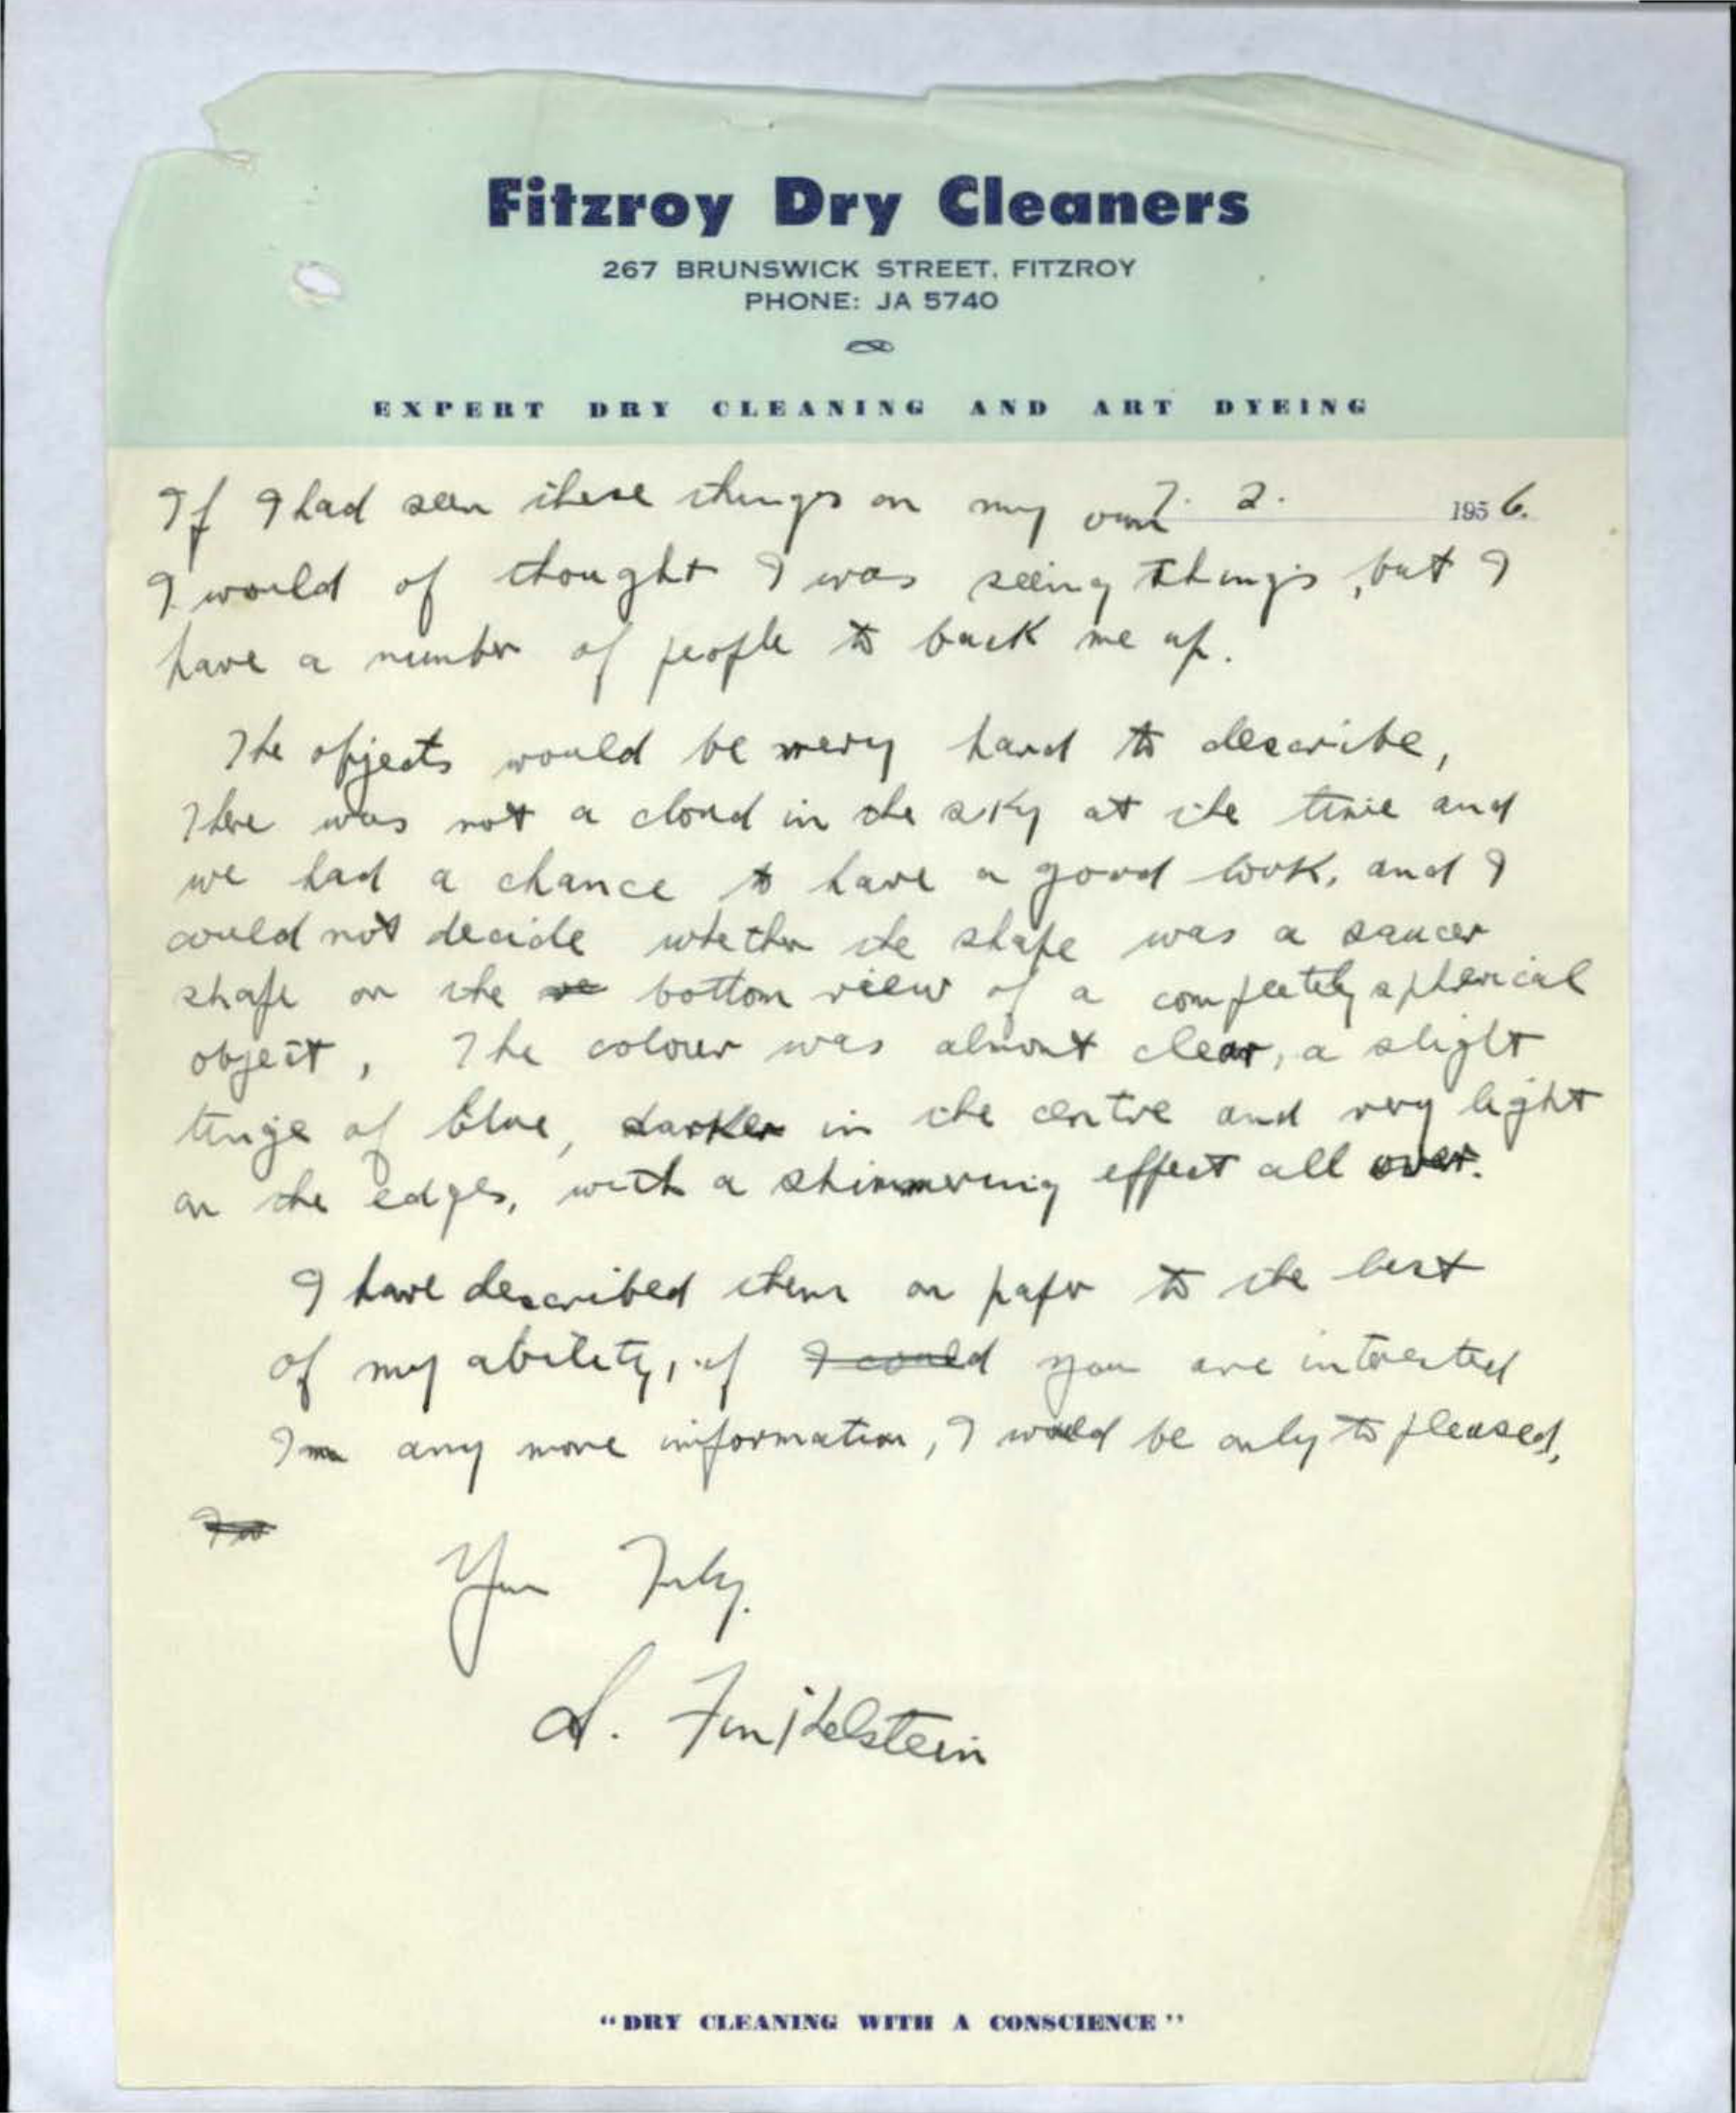 Fitzroy Dry Cleaners
267 BRUNSWICK STREET, FITZROY
PHONE: JA 5740
EXPERT DRY CLEANING AND ART DYEING
If I had seen these things on my own 7. 2. 1956.
I would of thought I was seeing things, but I
have a number of people to back me up.
The objects would be very hard to describe,
There was not a cloud in the sky at the time and
we had a chance to have a good look, and I
could not decide whether the shape was a saucer
shape or the bottom view of a completely spherical
object, The colour was almost clear, a slight
tinge of blue, darker in the centre and very light
on the edges, with a shimmering effect all over.
I have described them on paper to the best
of my ability, if I could you are interested
In any more information, I would be only to pleased,
Your Truly.
Finkelstein
"DRY CLEANING WITH A CONSCIENCE"